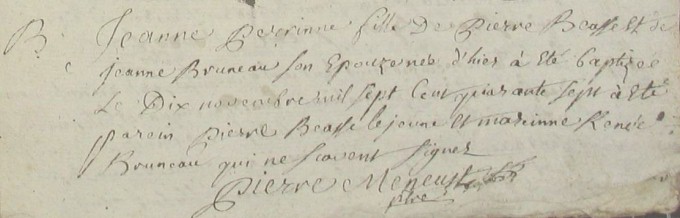 B. Jeanne Perrinne fille De Pierre Beasse et de
jeanne Bruneau son Epouze nee d'hier à été baptizée
Le Dix novembre mil sept Cent quarante sept à été
parein Pierre Beasse le jeune et mareinne Renée
Bruneau qui ne scavent signer
Pierre Meneust
ptre